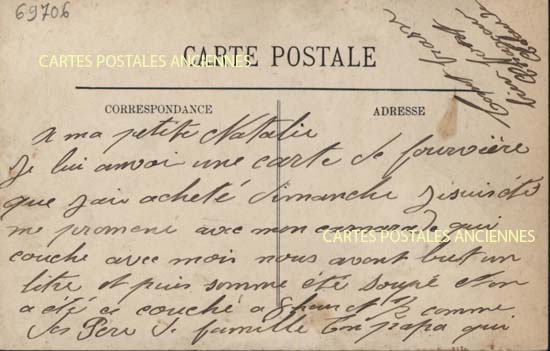 69706
CARTE POSTALE
CARTES POSTALES ANCIENNES
CORRESPONDANCE
ADRESSE
a ma petite Natalie
Je lui anvoi une carte de fourvière
que jai acheté dimanche Jsuis été
me promené avec mon qui
CARTES POSTALES ANCIENNES
couche avec mois nous avont but un
litre et puis somme été soupé et on
a été ce couché a 8 heur et 1/2 comme
des Père de famille ton papa qui